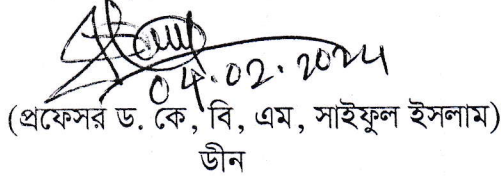 04.02.2024
(প্রফেসর ড. কে, বি, এম, সাইফুল ইসলাম)
ডীন